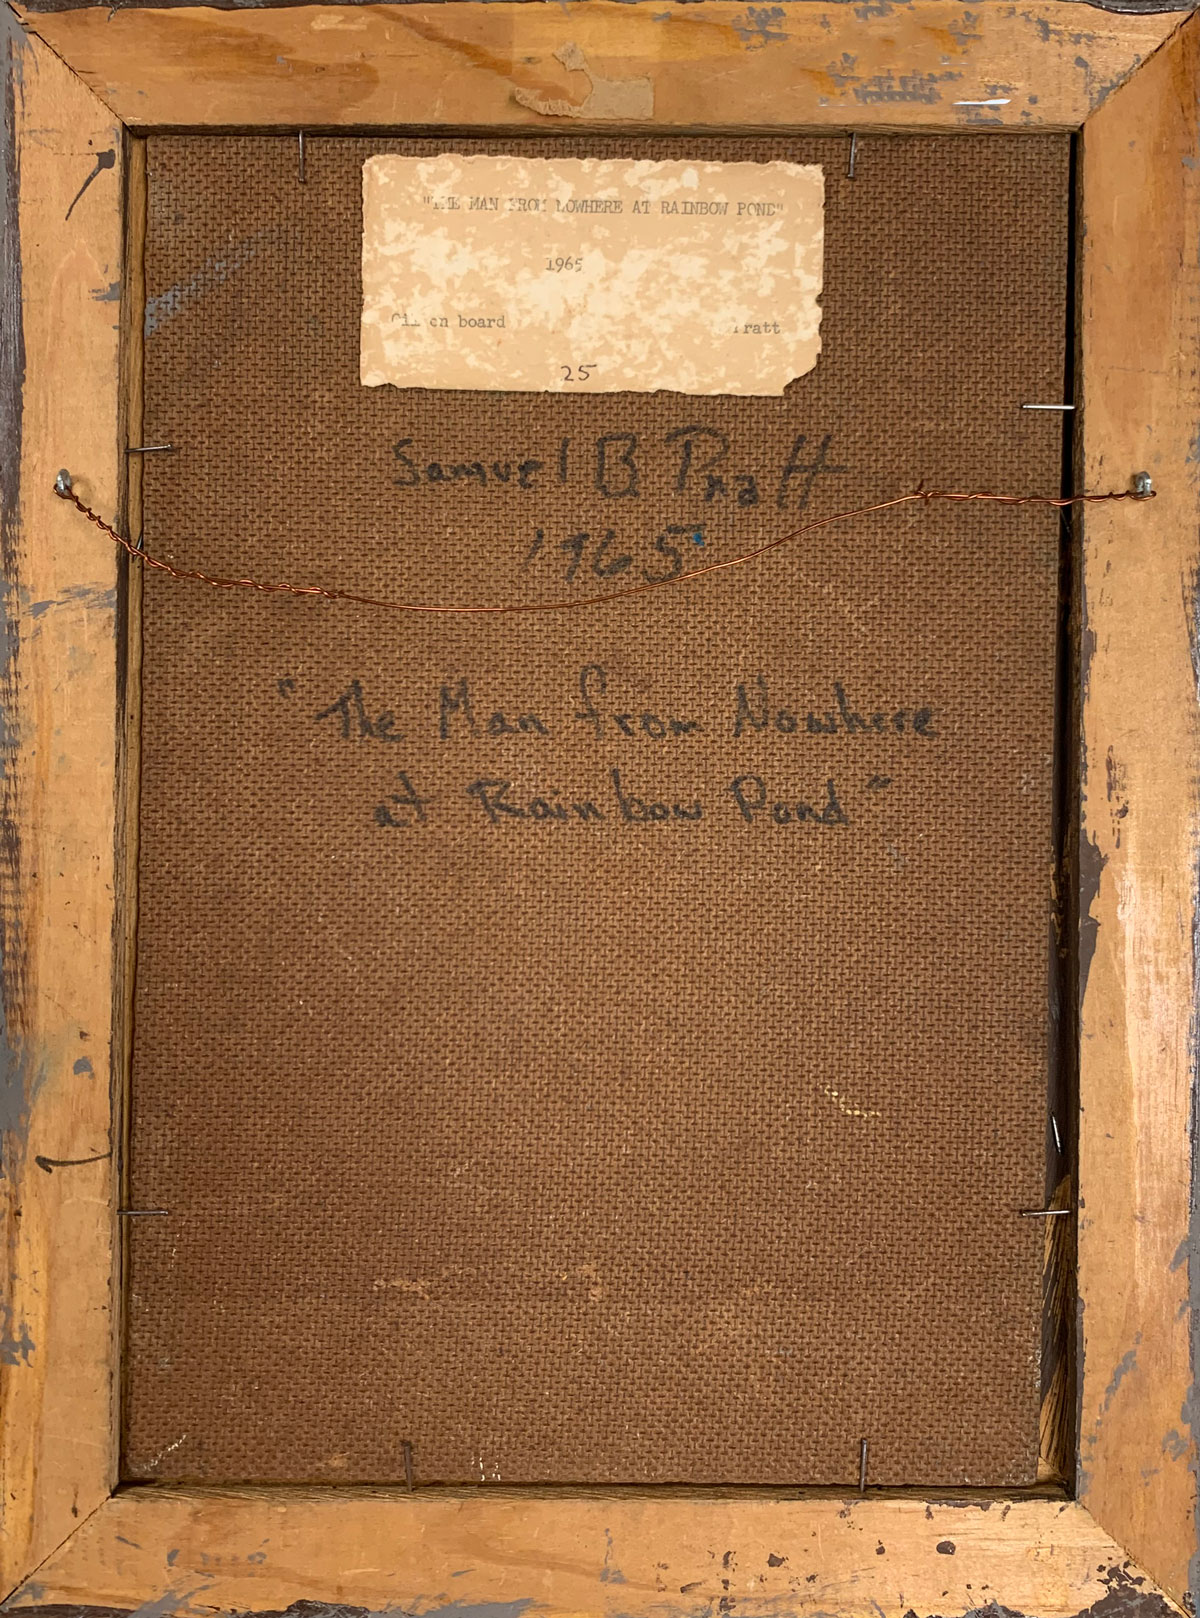 "THE MAN FROM NOWHERE AT RAINBOW POND"
1965
Oil on board Pratt
25
Samuel B. Pratt
1965
"The Man from Nowhere
at Rainbow Pond"